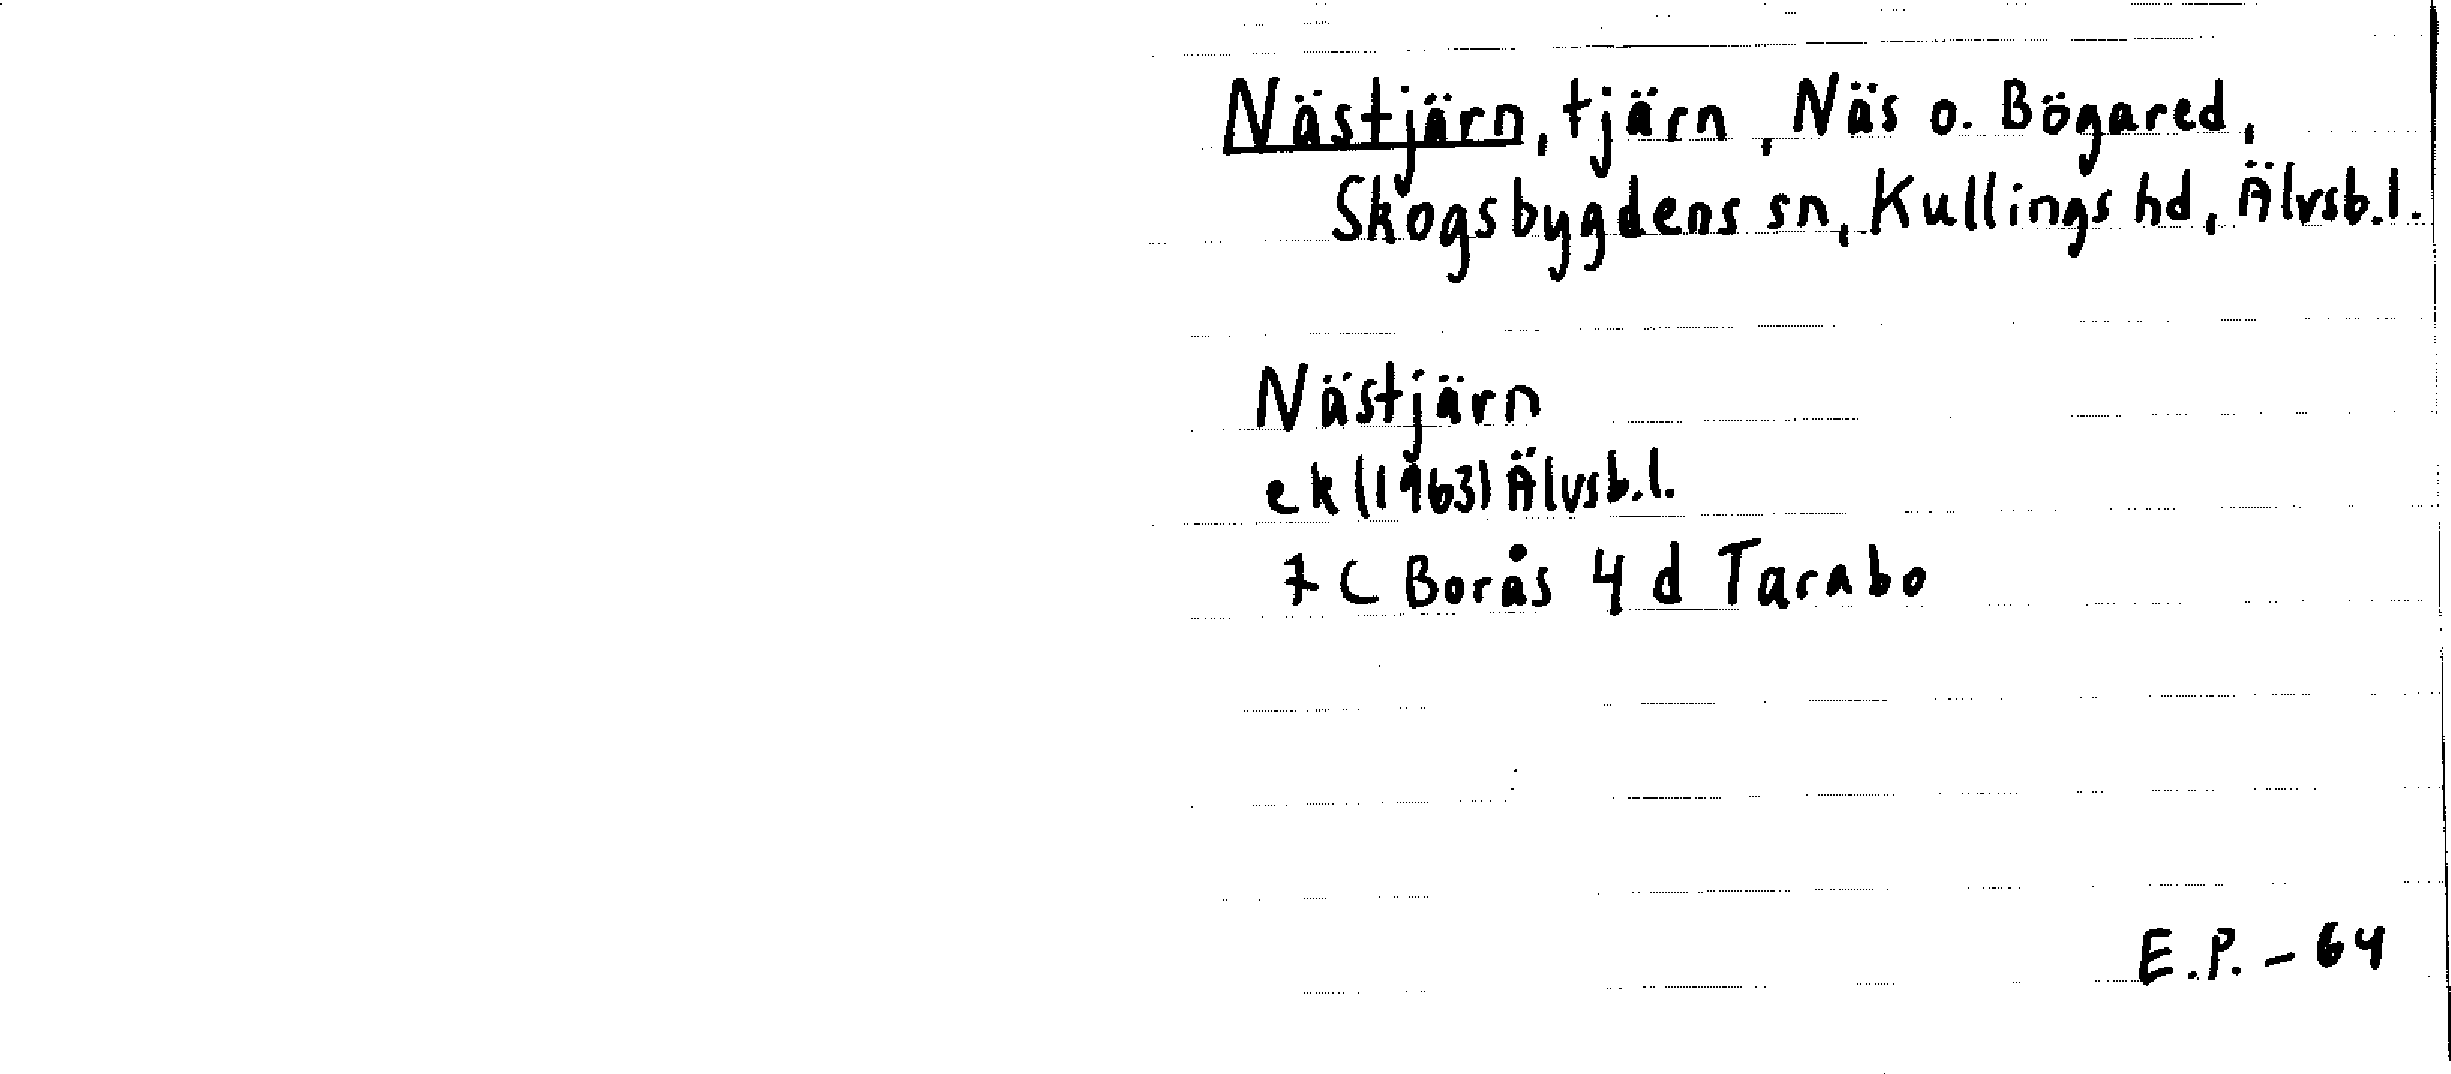 Nästjärn, tjärn, Näs o. Bögared,
Skogsbygdens sn, Kullings hd, Älvsb.l.
Nästjärn
ek (1963) Älvsb.l.
7 C Borås 4 d Tarabo
E.P. - 64